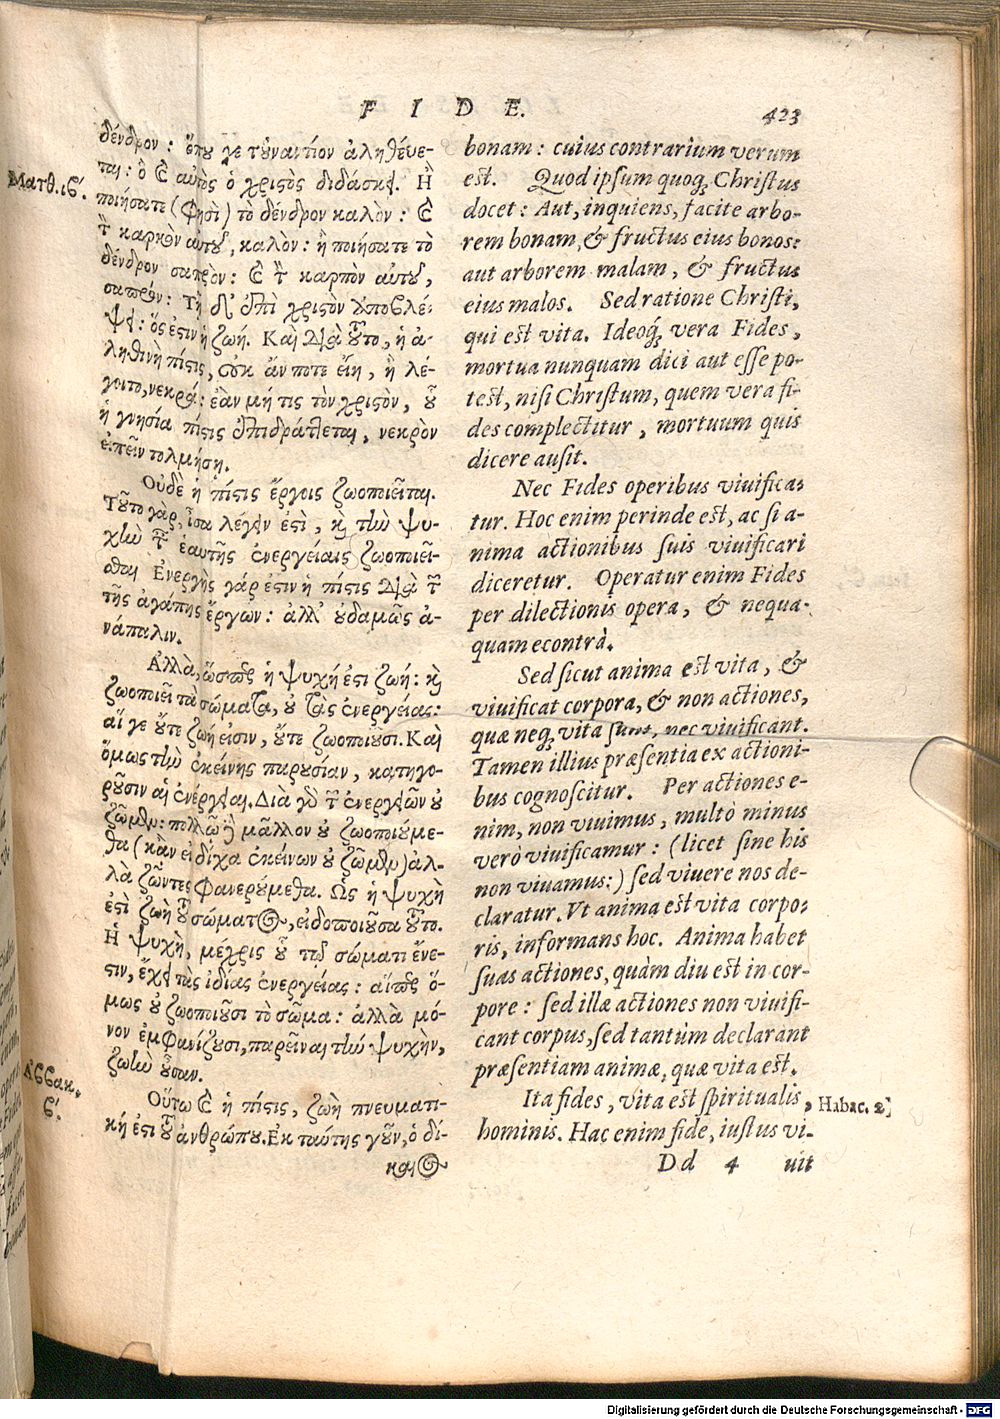 F I D E.
423
δένδρον : ὅπου γε τοὐναντίον ἀληθεύε-
ται : ὃ καὶ αὐτὸς ὁ χριστὸς διδάσκει. Ἢ
Ματθ. ιβ΄.
ποιήσατε (φησὶ) τὸ δένδρον καλὸν : καὶ
τὸν καρπὸν αὐτοῦ, καλὸν : ἢ ποιήσατε τὸ
δένδρον σαπρὸν : καὶ τὸν καρπὸν αὐτοῦ,
σαπρόν : Τῇ δ' ἐπὶ χριστὸν ὑποβλέ-
ψει : ὅς ἐστιν ἡ ζωή. Καὶ διὰ τοῦτο, ἡ ἀ-
ληθινὴ πίστις, οὐκ ἄν ποτε εἴη, ἢ λέ-
γοιτο, νεκρά : ἐὰν μή τις τὸν χριστὸν, οὗ
ἡ γνησία πίστις ἐπιδράττεται, νεκρὸν
εἰπεῖν τολμήσῃ.
Οὐδὲ ἡ πίστις ἔργοις ζωοποιεῖται.
Τοῦτο γὰρ, ἶσα λέγειν ἐστὶ, καὶ τὴν ψυ-
χὴν ταῖς ἑαυτῆς ἐνεργείαις ζωοποιεῖ-
σθαι Ἐνεργὴς γάρ ἐστιν ἡ πίστις διὰ τῶν
τῆς ἀγάπης ἔργων : ἀλλ' οὐδαμῶς ἀ-
νάπαλιν.
Ἀλλὰ, ὥσπερ ἡ ψυχή ἐστι ζωή : καὶ
ζωοποιεῖ τὰ σώματα, οὐ τὰς ἐνεργείας :
αἵ γε οὔτε ζωή εἰσιν, οὔτε ζωοποιοῦσι. Καὶ
ὅμως τὴν ἐκείνης παρουσίαν, κατηγο-
ροῦσιν αἱ ἐνέργειαι. Διὰ γὰρ τῶν ἐνεργειῶν οὐ
ζῶμεν : πολλῷ δὴ μᾶλλον οὐ ζωοποιούμε-
θα (κἂν εἰ δίχα ἐκείνων οὐ ζῶμεν) ἀλ-
λὰ ζῶντες φανερούμεθα. Ὡς ἡ ψυχὴ
ἐστὶ ζωὴ τοῦ σώματος, εἰδοποιοῦσα τοῦτο.
Ἡ ψυχὴ, μέχρις οὗ τῷ σώματι ἔνε-
στιν, ἔχει τὰς ἰδίας ἐνεργείας : αἵπερ ὅ-
μως οὐ ζωοποιοῦσι τὸ σῶμα : ἀλλὰ μό-
νον ἐμφανίζουσι, παρεῖναι τὴν ψυχὴν,
ζωὴν οὖσαν.
Ἀββακ.
β΄.
Οὕτω καὶ ἡ πίστις, ζωὴ πνευματι-
κή ἐστι τοῦ ἀνθρώπου. Ἐκ ταύτης γοῦν, ὁ δί-
καιος
bonam : cuius contrarium verum
est. Quod ipsum quoq; Christus
docet : Aut, inquiens, facite arbo-
rem bonam, & fructus eius bonos:
aut arborem malam, & fructus
eius malos. Sed ratione Christi,
qui est vita. Ideoq; vera Fides,
mortua nunquam dici aut esse po-
test, nisi Christum, quem vera fi-
des complectitur, mortuum quis
dicere ausit.
Nec Fides operibus viuifica-
tur. Hoc enim perinde est, ac si a-
nima actionibus suis viuificari
diceretur. Operatur enim Fides
per dilectionis opera, & nequa-
quam econtrà.
Sed sicut anima est vita, &
viuificat corpora, & non actiones,
quæ neq; vita sunt, nec viuificant.
Tamen illius præsentia ex actioni-
bus cognoscitur. Per actiones e-
nim, non viuimus, multò minus
verò viuificamur : (licet sine his
non viuamus:) sed viuere nos de-
claratur. Vt anima est vita corpo-
ris, informans hoc. Anima habet
suas actiones, quàm diu est in cor-
pore : sed illæ actiones non viuifi-
cant corpus, sed tantùm declarant
præsentiam animæ, quæ vita est.
Ita fides, vita est spiritualis
Habac. 2.
hominis. Hac enim fide, iustus vi-
Dd 4 uit
Digitalisierung gefördert durch die Deutsche Forschungsgemeinschaft - DFG